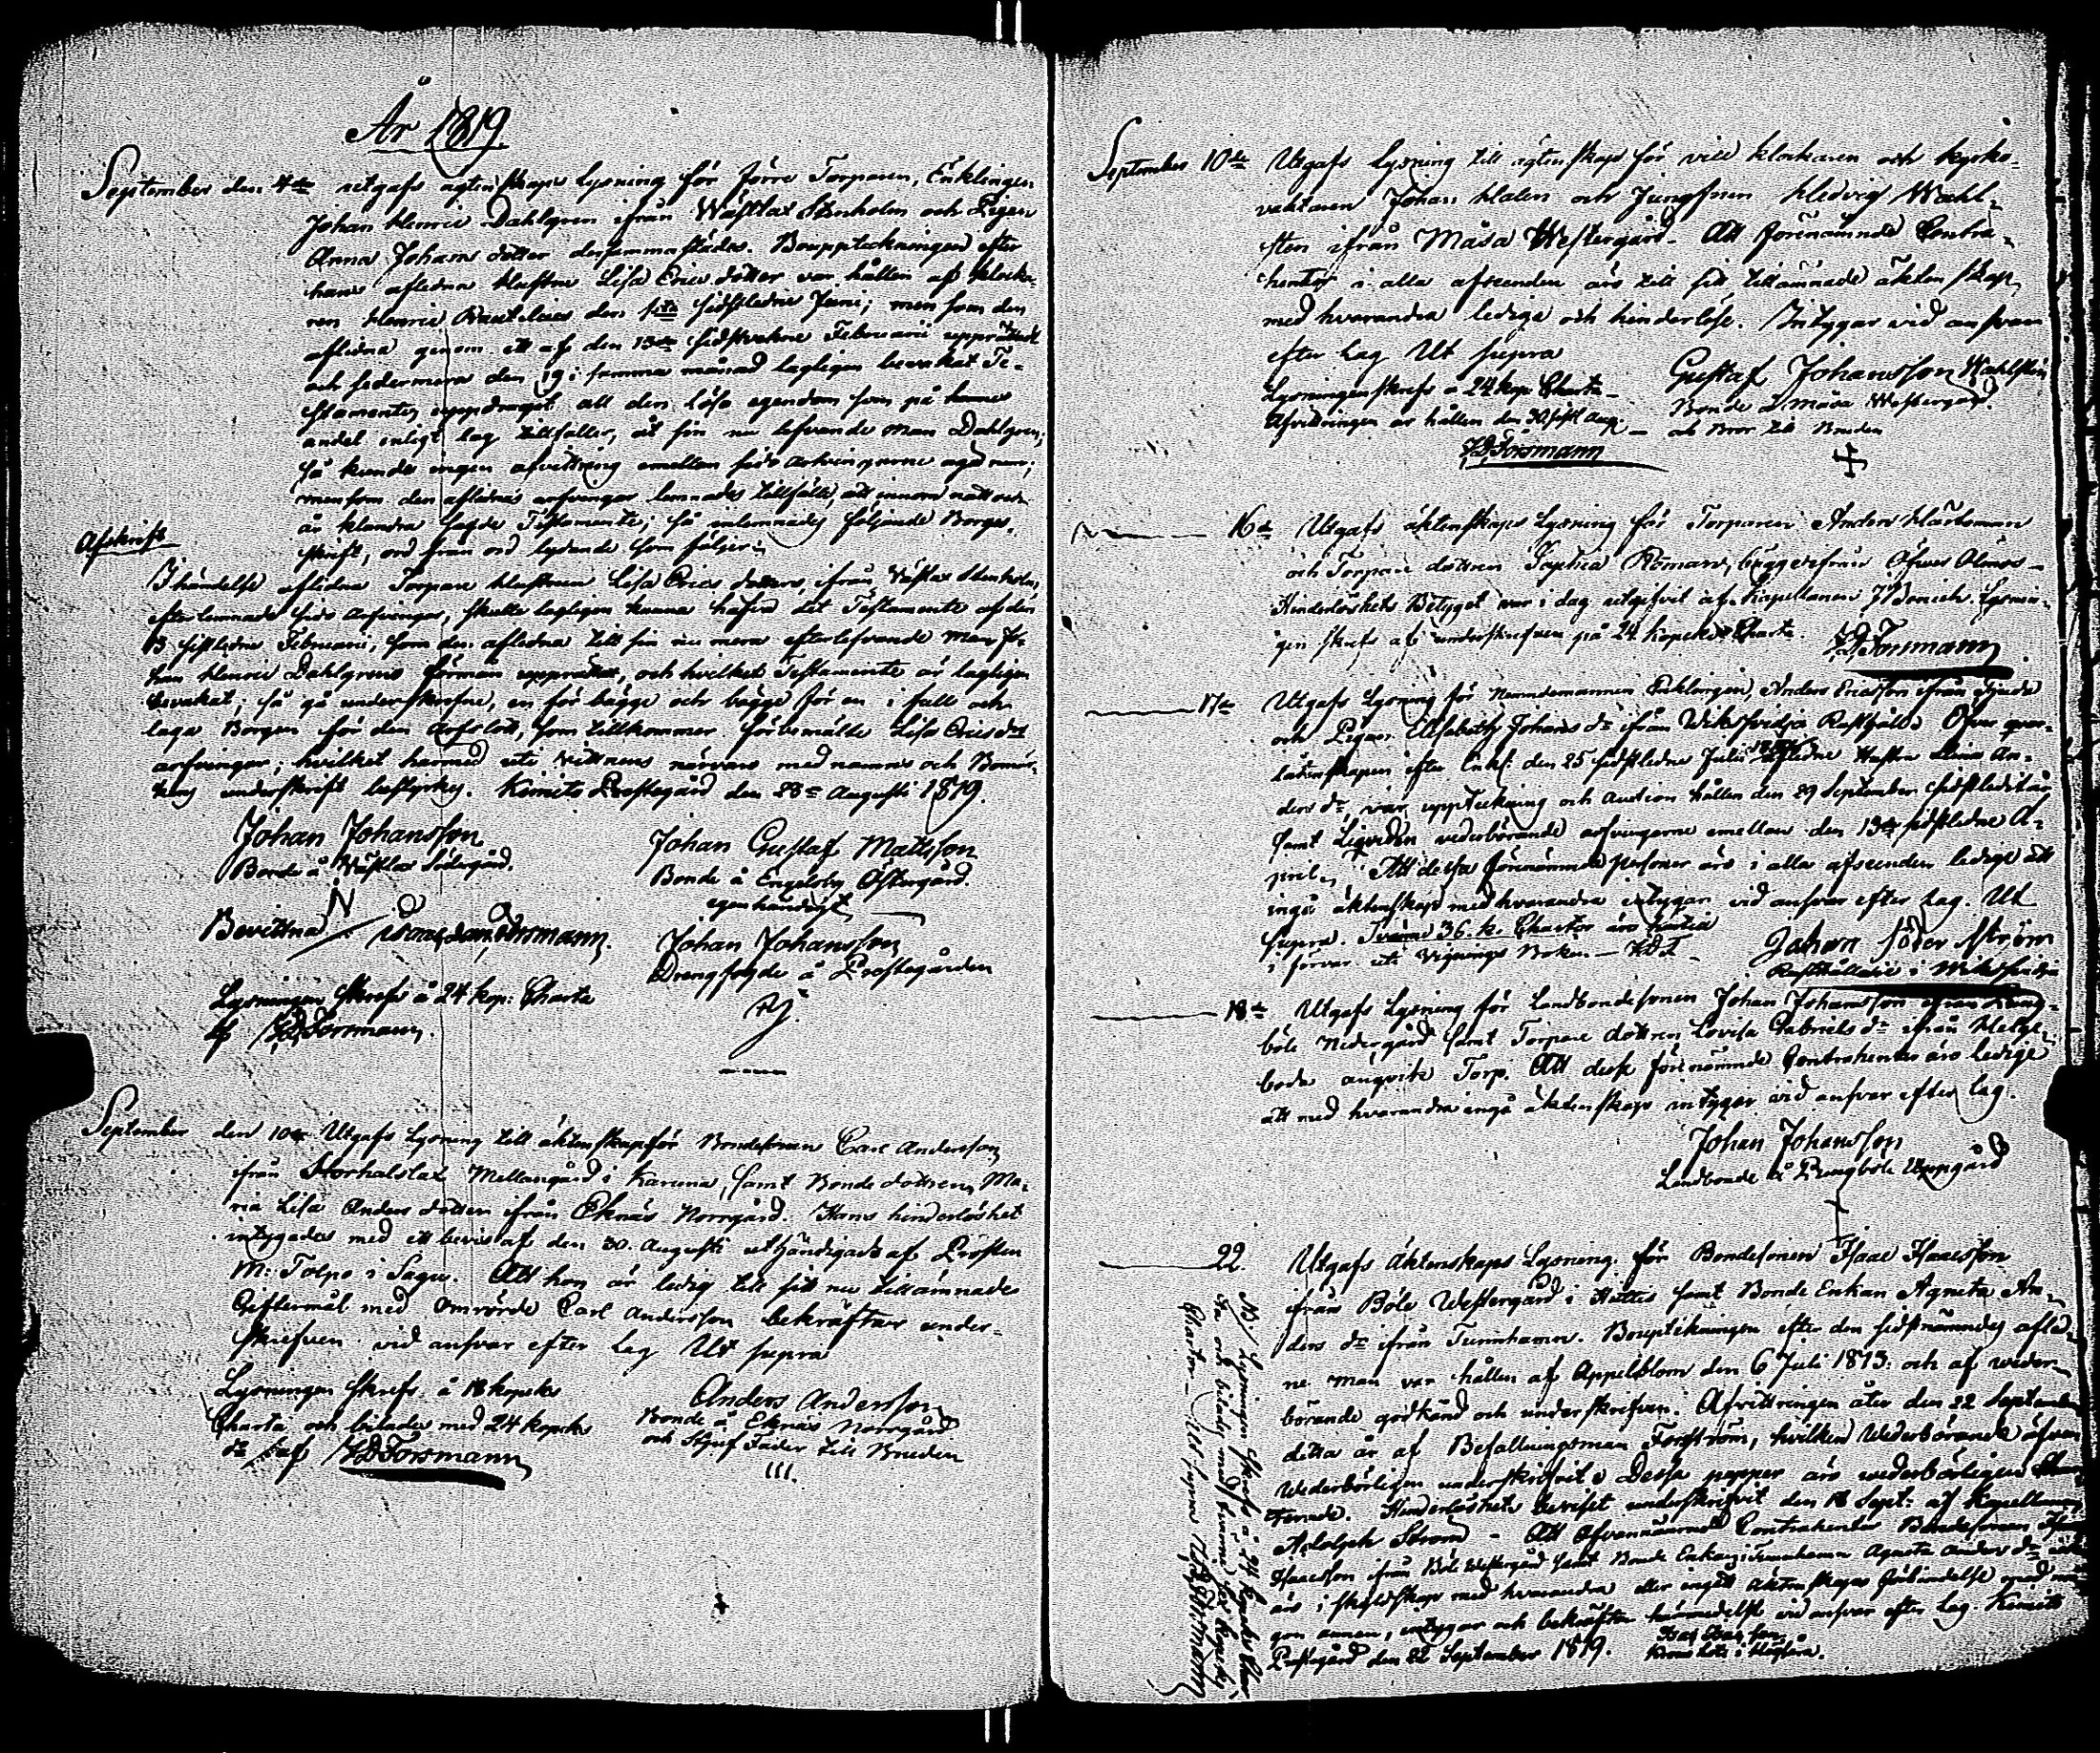 År 1819.
September den 4de utgafs ägtenskaps Lysning för förre Torparen, Enklingen
Johan Henric Dahlgren ifrån Wästlax Stenholm och Pigan
Anna Johans dotter dersammastädes. Bouppteckningen efter
hans aflidna Hustru Lisa Erics dotter var hållen af Klocka-
ren Henric den sidstledne Junii; men som den
aflidna genom ett af den 13de sidstvekne Februarii upprättadt
och sedermera den 19 i samma månad lagligen bevakat Te-
stamente, updragit all den lösa egendom som på hennes
andel enligt lag tillfaller, åt sin nu lefvande man Dahlgren,
så kunde ingen afvittring emellan sids arfvingarne äga rum;
men som den aflidnas arfvingar lemnades tillfälle, att innom natt och
år klandra sagde Testamente; så inlemnades följande Borges-
skrift, ord från ord lydande som följer:
Afskrift
I händelse aflidna Torpare Hustrun Lisa Erics dotters, ifrån Wästlax Stenholm,
efterlemnade sids arfvingar, skulle lagligen kunna häfva det Testamente af den
13 sistledne Februarii, som den aflidna till sin nu mera efterlefvande Man Jo-
han Henric Dahlgrens förmån upprättat, och hvilket Testamente är lagligen
bevakat; så gå underskrefne, en för bägge och bägge för en i full och
laga Borgen för den Arfslott, som tillkommer förbemälde Lisa Ericsdrs
arfvingar; hvilket härmed uti vittnens närvaro med namns och Bomär-
kens underskrift bestyrkes. Kimito Prestegård den 28de Augusti 1819.
Johan Johansson
Bonde å Wästlax Södergård.
Johan Gustaf Mattsson
Bonde å Engelsby Östergård.
egenhändigt
Bevittna Forsmann.
Johan Johansson
Drengfogde å Prestegården
Lysningen skrefs å 24 kop: Charta
af Forsmann.
September den 10de Utgafs Lysning till äktenskap för Bondesonen Carl Andersson
ifrån Storhalslax Mellangård i Karuna, samt Bonde dottren Ma-
ria Lisa Anders dotter ifrån Eknäs Norrgård. Hans hinderlöshet
intygades med ett bevis af den 30. Augusti uthändigade af Prosten
M: Tolpo i Sagu. Att hon är ledig till sitt nu tillämnade
Giftermål med omrörde Carl Andersson bekräftar under-
skrefven vid ansvar efter Lag Ut supra
Lysningen skrefs å 18 kopeks
Charta och bilades med 24 kopeks
do af Forsmann
Anders Andersson
Bonde å Eknäs Norrgård
och Styf Fader till Bruden
III.
September 10de Utgafs Lysning till ägtenskap för vice klockaren och kyrko-
vaktaren Johan Malen och Jungfrun Hedvig Wahl-
sten ifrån Måsa Westergård. Att förenämnde Contra-
henter i alla afseenden äro till sitt tillämnade äktenskap
med hvarandra ledige och hinderlöse. Intygar vid ansvar
efter Lag Ut supra
Lysningen skrefs å 24 kop. Charta
Afvittringen är hållen den 30 sistl. Aug.
Forsmann
Gustaf Johansson Wahlsten
Bonde å Måsa Westergård.
och Bror till Bruden
16de Utgafs äktenskaps Lysning för Torparen Anders
och Torpare dottren Sophia Roman, bägge ifrån Öfver Ölmos
Hinderlöshets Betyget var i dag utgifvit af Kapellanen J. Lysnin-
gen skrefs af underskrefven på 24 kopeks Charta.
Forsmann
17de Utgafs Lysning för Nemndemannen Enklingen, Anders Ericsson ifrån
och Pigan Elisabeth Johans dr ifrån Wiksvidja Rusthåll. Öfver qvar-
låtenskapen efter Enkl: den 25 sidstledne Julii aflidne Hustru An-
ders dr, var uppteckning och Auction hållen den 29 September sidstledit år
samt Liqviden vederbörande arfvingarne emellan den 13de sidstledne A-
pril. Att dessa förenämnde personer äro i alla afseenden ledige att
ingå äktenskap med hvarandra intygar vid ansvar efter Lag. Ut
supra. Tvänne 36. k. Chartor äro
i förvar uti Vignings Boken.
Johan Söderström
Rusthållare i Wiksvidja
18de Utgafs Lysning för Landbondesonen Johan Johansson ifrån
böle Nedergård samt Torpare dottren Lovisa Gabriels dr ifrån Helge-
boda Torp. Att desse förenämnde Contrahenter äro ledige
att med hvarandra ingå äktenskap intygar vid ansvar efter Lag.
Johan Johansson
Landbonde å Uppgård
22. Utgafs Äktenskaps Lysning för Bondesonen Isaac Isaacsson
ifrån Böle Westergård i Hitis samt Bonde Enkan Agneta An-
ders dr ifrån Tunnhamn. Bouptekningen efter den sidstnämndes aflid-
ne man var hållen af Appelblom den 6 Juli 1813. och af weder-
börande godkänd och underskrifven. Afvittringen åter den 22 September
detta år af Befallningsman Forsström, hvilken Wederbörande äfven
Wederbörligen underskrifvit. Dessa papper äro wederbörligen
. Hinderlöshets beviset underskrifvit den 18 Sept: af Kapellanen
Adolph Ström. Att Ofvannämnde Contrahenter Bondesonen Isaac
Isaacsson ifrån Böle Westergård samt Bonde Enkan i Tunnhamn Agneta Anders dr
äro i skyldskap med hvarandra eller ingått äktenskaps förbindelse med nå-
gon annan, intygar och bekräftar härmedelst vid ansvar efter Lag. Kimito
Prestegård den 22 September 1819.
NB/ Lysningen skrefs å 24 kopeks Char-
ta och bilades med tvänne kopeks
Chartor Ut supra Forsmann